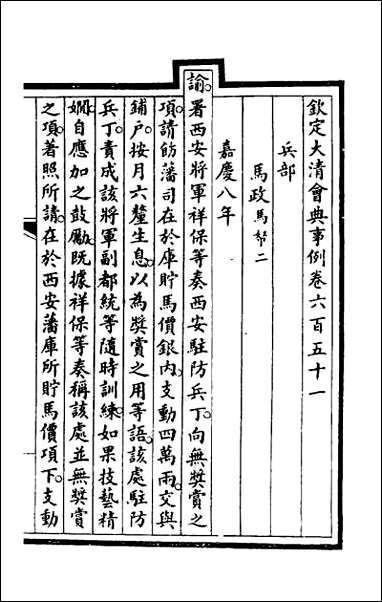 欽定大清會典事例卷六百五十一
兵部
馬政馬幣二
嘉慶八年
諭。署西安將軍祥保等奏西安駐防兵丁。向無獎賞之
項。請飭藩司在於庫貯馬價銀內。支動四萬兩。交與
鋪户。按月六釐生息。以為獎賞之用等語。該處駐防
兵丁。責成該將軍副都統等隨時訓練。如果技藝精
嫻。自應加之鼓勵。既據祥保等奏稱該處並無獎賞
之項。著照所請。在於西安藩庫所貯馬價項下。支動